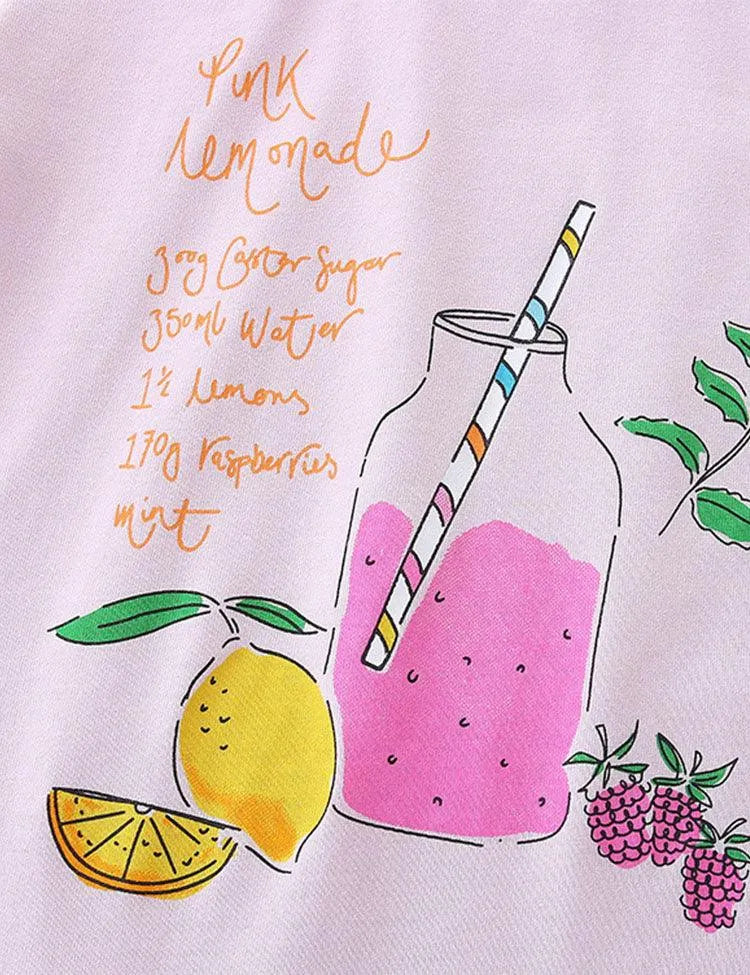 Pink
lemonade
300g Caster Sugar
350ml Water
1½ lemons
170g raspberries
mint